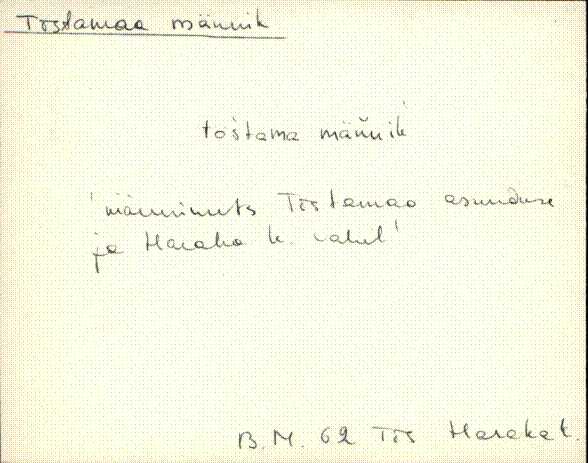 Tõstamaa männik
tòštama mäńnik
'männimets Tõstamaa asunduse
ja Haraka k. vahel'
B.M. 62 Tõs Haraka k.